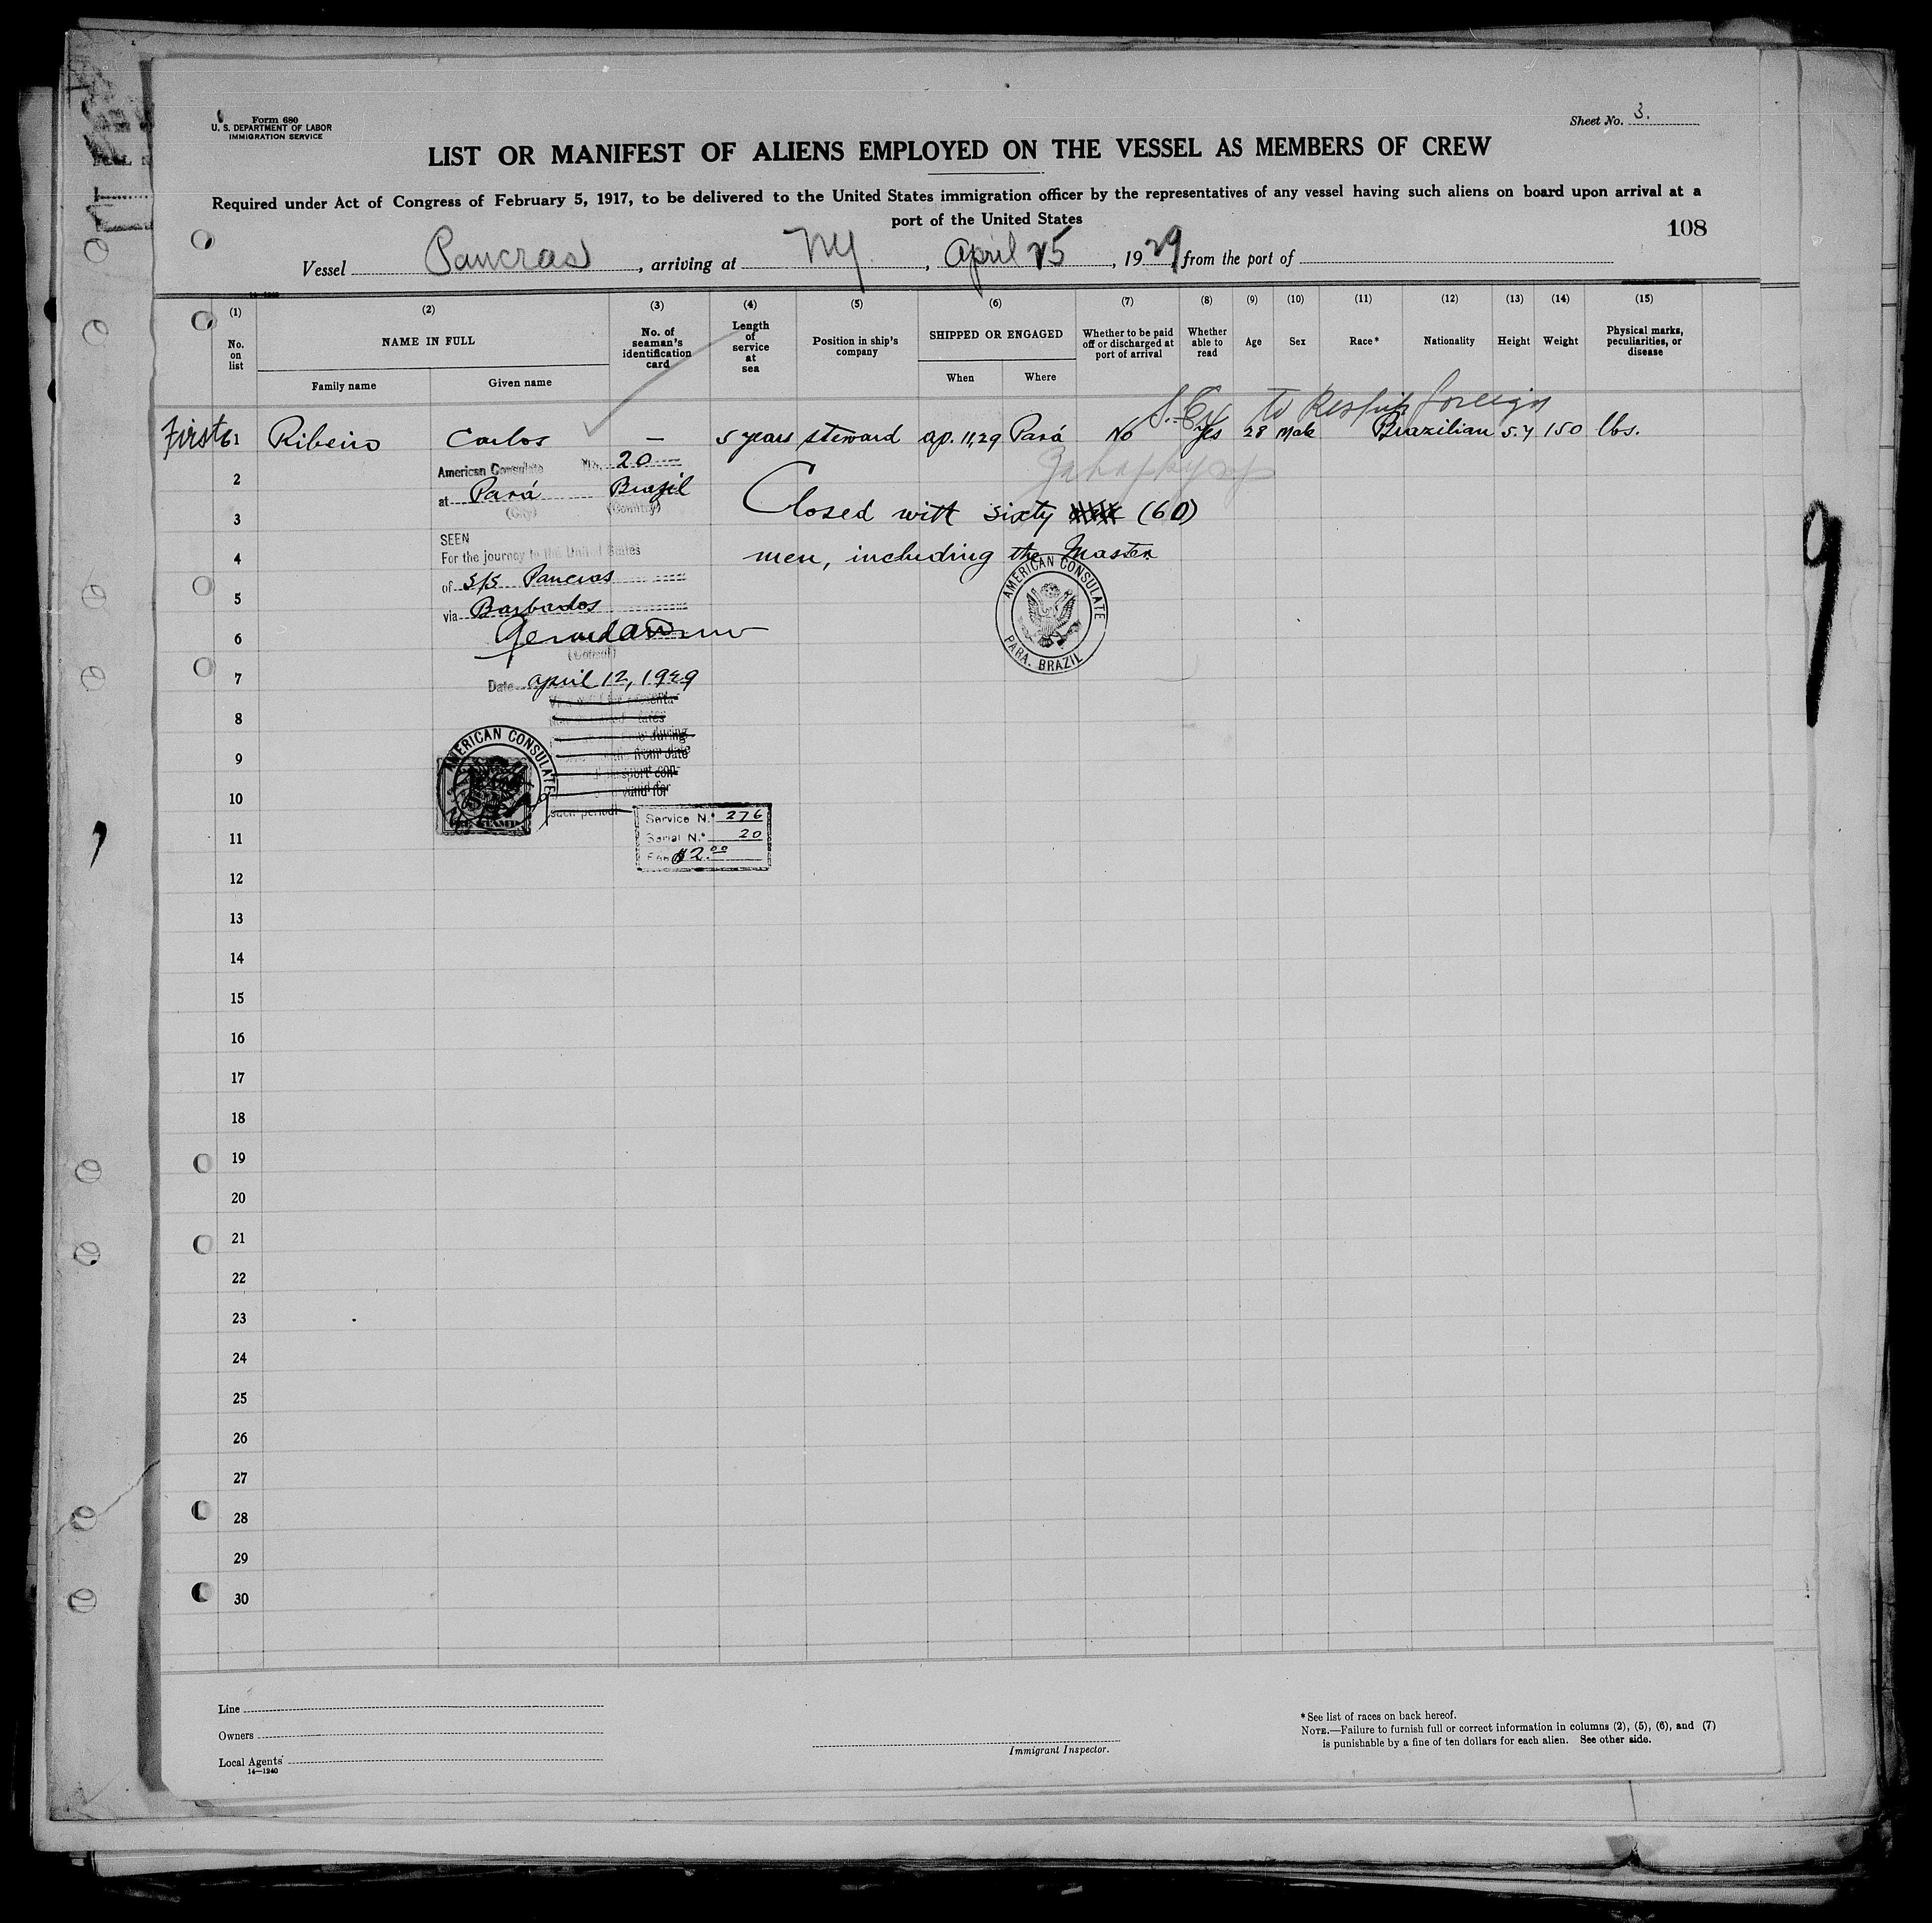 Form 680
U. S. DEPARTMENT OF LABOR
IMMIGRATION SERVICE
Sheet No. 3.
LIST OR MANIFEST OF ALIENS EMPLOYED ON THE VESSEL AS MEMBERS OF CREW
Required under Act of Congress of February 5, 1917, to be delivered to the United States immigration officer by the representatives of any vessel having such aliens on board upon arrival at a
port of the United States
108
Vessel Pancras, arriving at NY., April 25, 1929 from the port of
(1) (2) (3) (4) (5) (6) (7) (8) (9) (10) (11) (12) (13) (14) (15)
No. on list
NAME IN FULL
Family name
Given name
No. of seaman's identification card
Length of service at sea
Position in ship's company
SHIPPED OR ENGAGED
When
Where
Whether to be paid off or discharged at port of arrival
Whether able to read
Age
Sex
Race*
Nationality
Height
Weight
Physical marks, peculiarities, or disease
to Reship foreign
First 1 Ribeiro Carlos — 5 years steward ap. 11, 29 Pará No Yes 28 Male Brazilian 5.7 150 lbs.
2
3
4
5
6
7
8
9
10
11
12
13
14
15
16
17
18
19
20
21
22
23
24
25
26
27
28
29
30
American Consulate No. 20
at Pará Brazil
(City) (Country)
SEEN
For the journey to the United States
of S/S Pancras
via Barbados
(Consul)
Date april 12, 1929
during
from date
valid for
such period
AMERICAN CONSULATE
Service N.º 276
Serial N.º 20
Fee $2.00
Closed with sixty (60)
men, including the Master
AMERICAN CONSULATE
PARA. BRAZIL
9
Line
Owners
Local Agents
14—1240
Immigrant Inspector.
*See list of races on back hereof.
NOTE.—Failure to furnish full or correct information in columns (2), (5), (6), and (7)
is punishable by a fine of ten dollars for each alien. See other side.